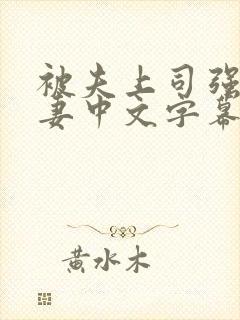 被夫上司强
妻中文字幕
黄水木